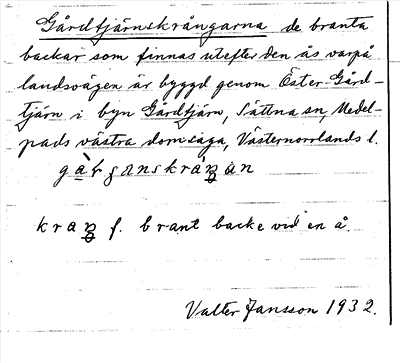 Gårdtjärnskrångarna de branta
backar som finnas utefter den ås varpå
landsvägen är byggd genom Öster-Gård-
tjärn i byn Gårdtjärn, Sättna sn, Medel-
pads västra domsaga, Västernorrlands l.
kraŋ f. brant backe vid en å.
Valter Jansson 1932.